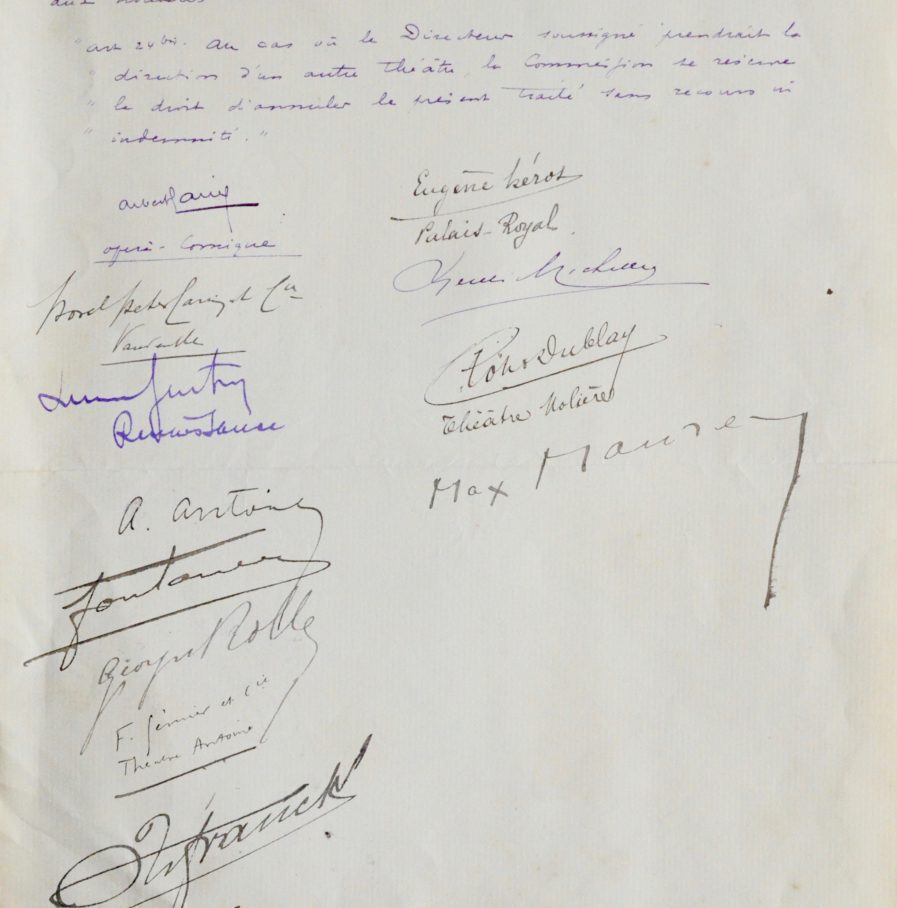 aux
" art 24 bis. Au cas où le Directeur soussigné prendrait la
" direction d'un autre théâtre, la Commission se réserve
" le droit d'annuler le présent traité sans recours ni
" indemnité. "
Albert Carré
opéra-Comique
Porel Peter Carin et Cie
Vaudeville
Guitry
Renaissance
A. Antoine
Fontanes
Georges Rolle
F. Gémier et Cie
Théâtre Antoine
Franck
Eugène Héros
Palais-Royal.
Dublay
Théâtre Molière
Max Maurey